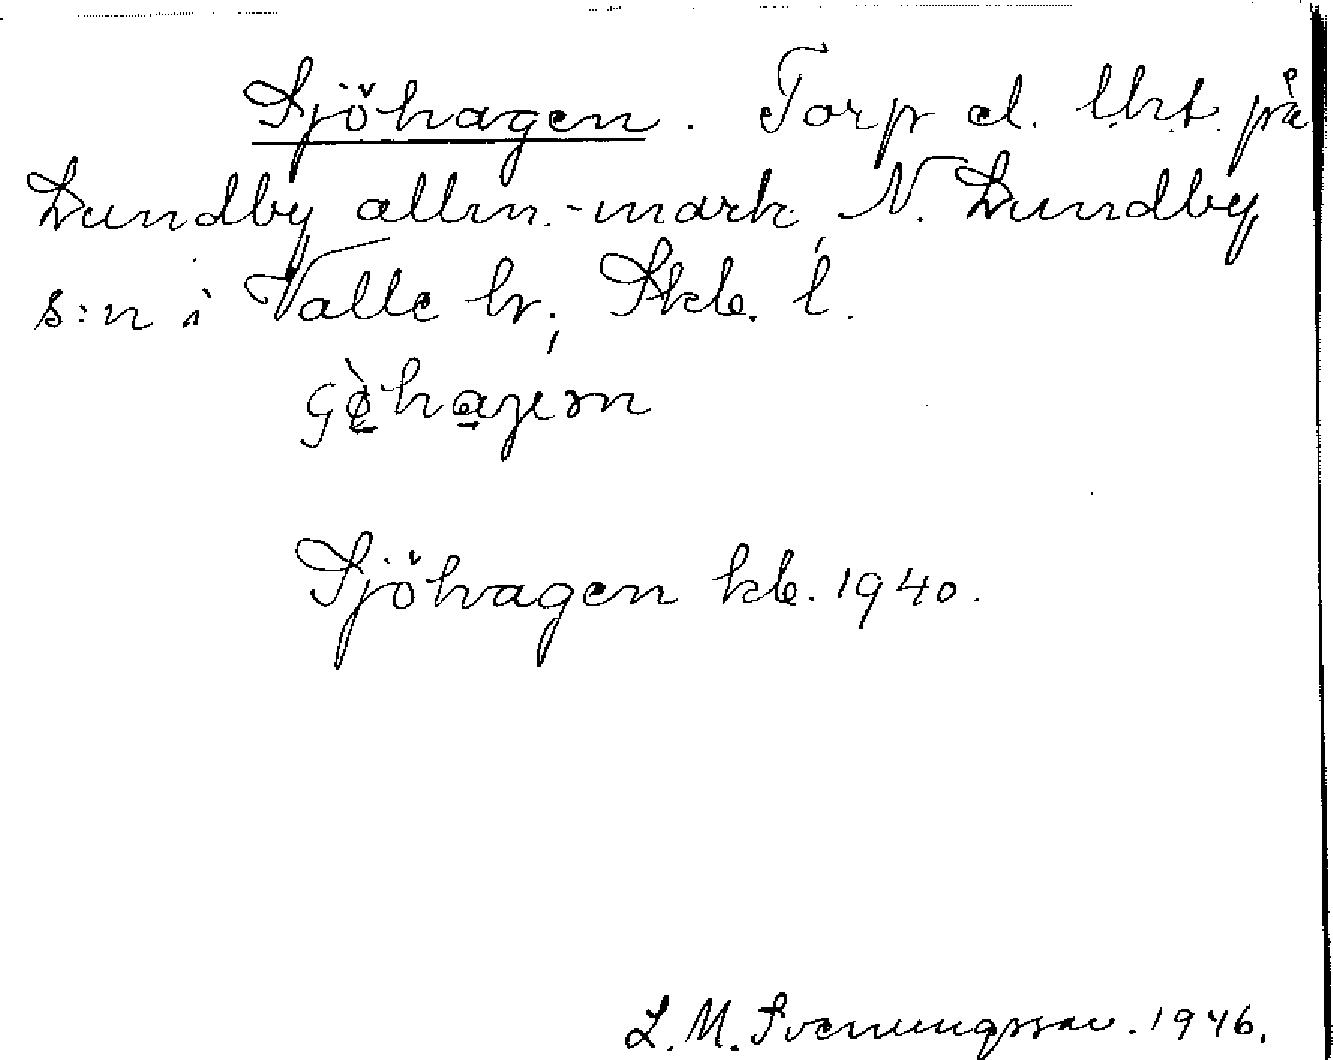 Sjöhagen. Torp el. lht. på
Lundby allm.-mark, N. Lundby
s:n i Valle hr; Skb. l.
Sjöhagen kb. 1940.
L. M. Svenungsson. 1946.